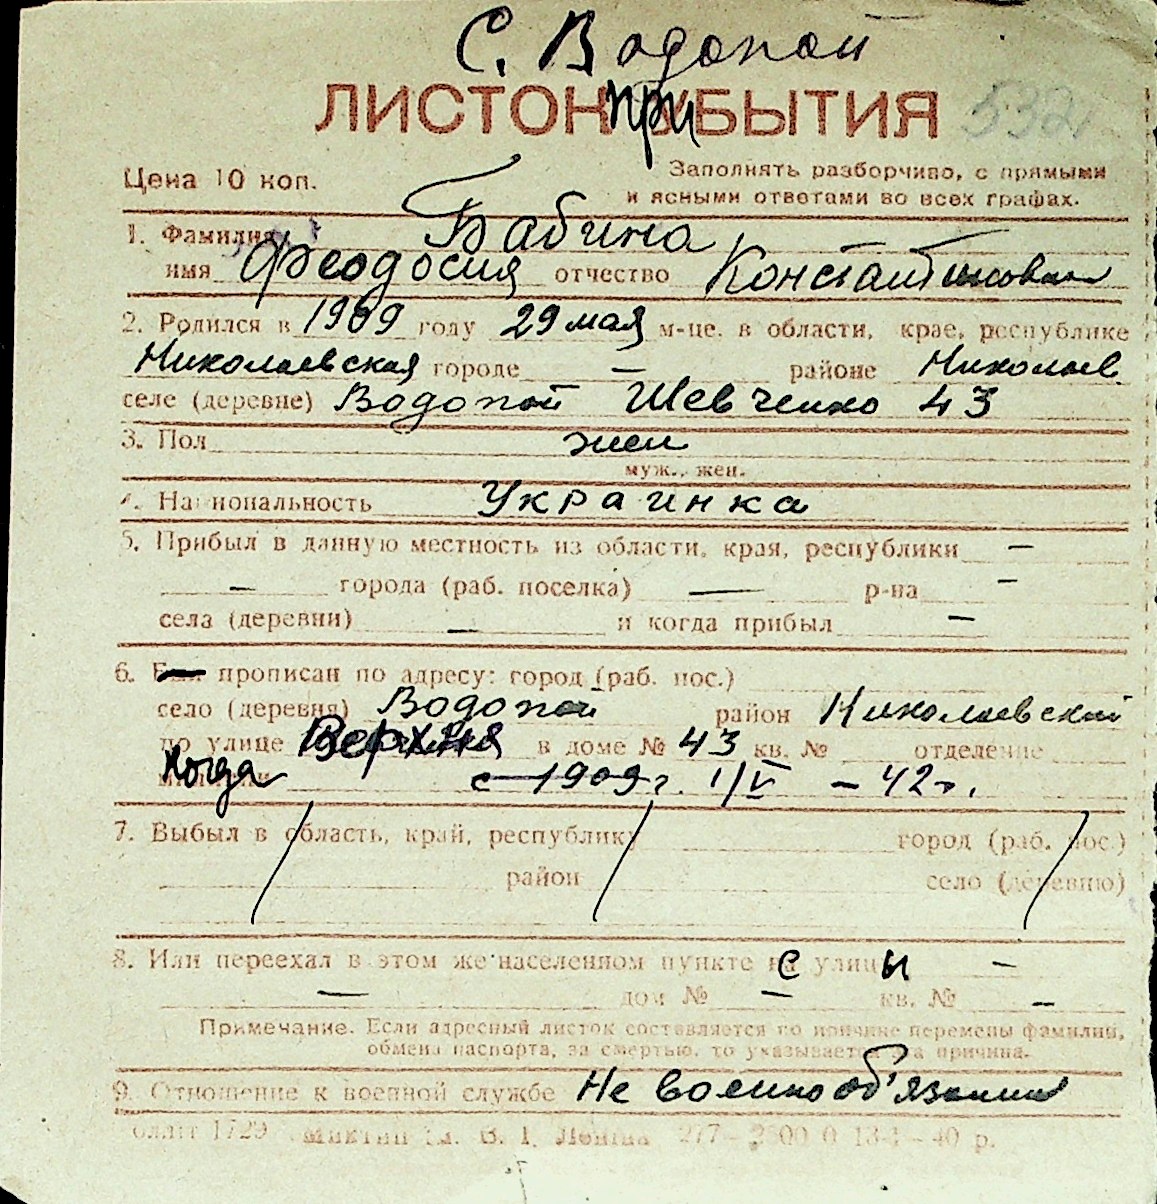 С. Водопой
ЛИСТОК прибЫТИЯ 532
Цена 10 коп.
Заполнять разборчиво, с прямыми
и ясными ответами во всех графах.
1. Фамилия Бабина
имя Феодосия отчество Константиновна
2. Родился в 1909 году 29 мая м-це. в области, крае, республике
Николаевская городе — районе Николаев.
селе (деревне) Водопой Шевченко 43
3. Пол жен
муж., жен.
4. Национальность Украинка
5. Прибыл в данную местность из области, края, республики —
— города (раб. поселка) — р-на —
села (деревни) — и когда прибыл —
6. прописан по адресу: город (раб. пос.)
село (деревня) Водопой район Николаевский
по улице Верхняя в доме № 43 кв. № отделение
Когда с 1909 г. 1/V – 42 г.
7. Выбыл в область, край, республику город (раб. пос.)
район село (деревню)
8. Или переехал в этом же населенном пункте с улицы —
— дом № — кв. № —
Примечание. Если адресный листок составляется по причине перемены фамилии,
обмена паспорта, за смертью, то указывается эта причина.
9. Отношение к военной службе Не военнооб'язанная
1729 В. І. Леніна 277 – 40 р.